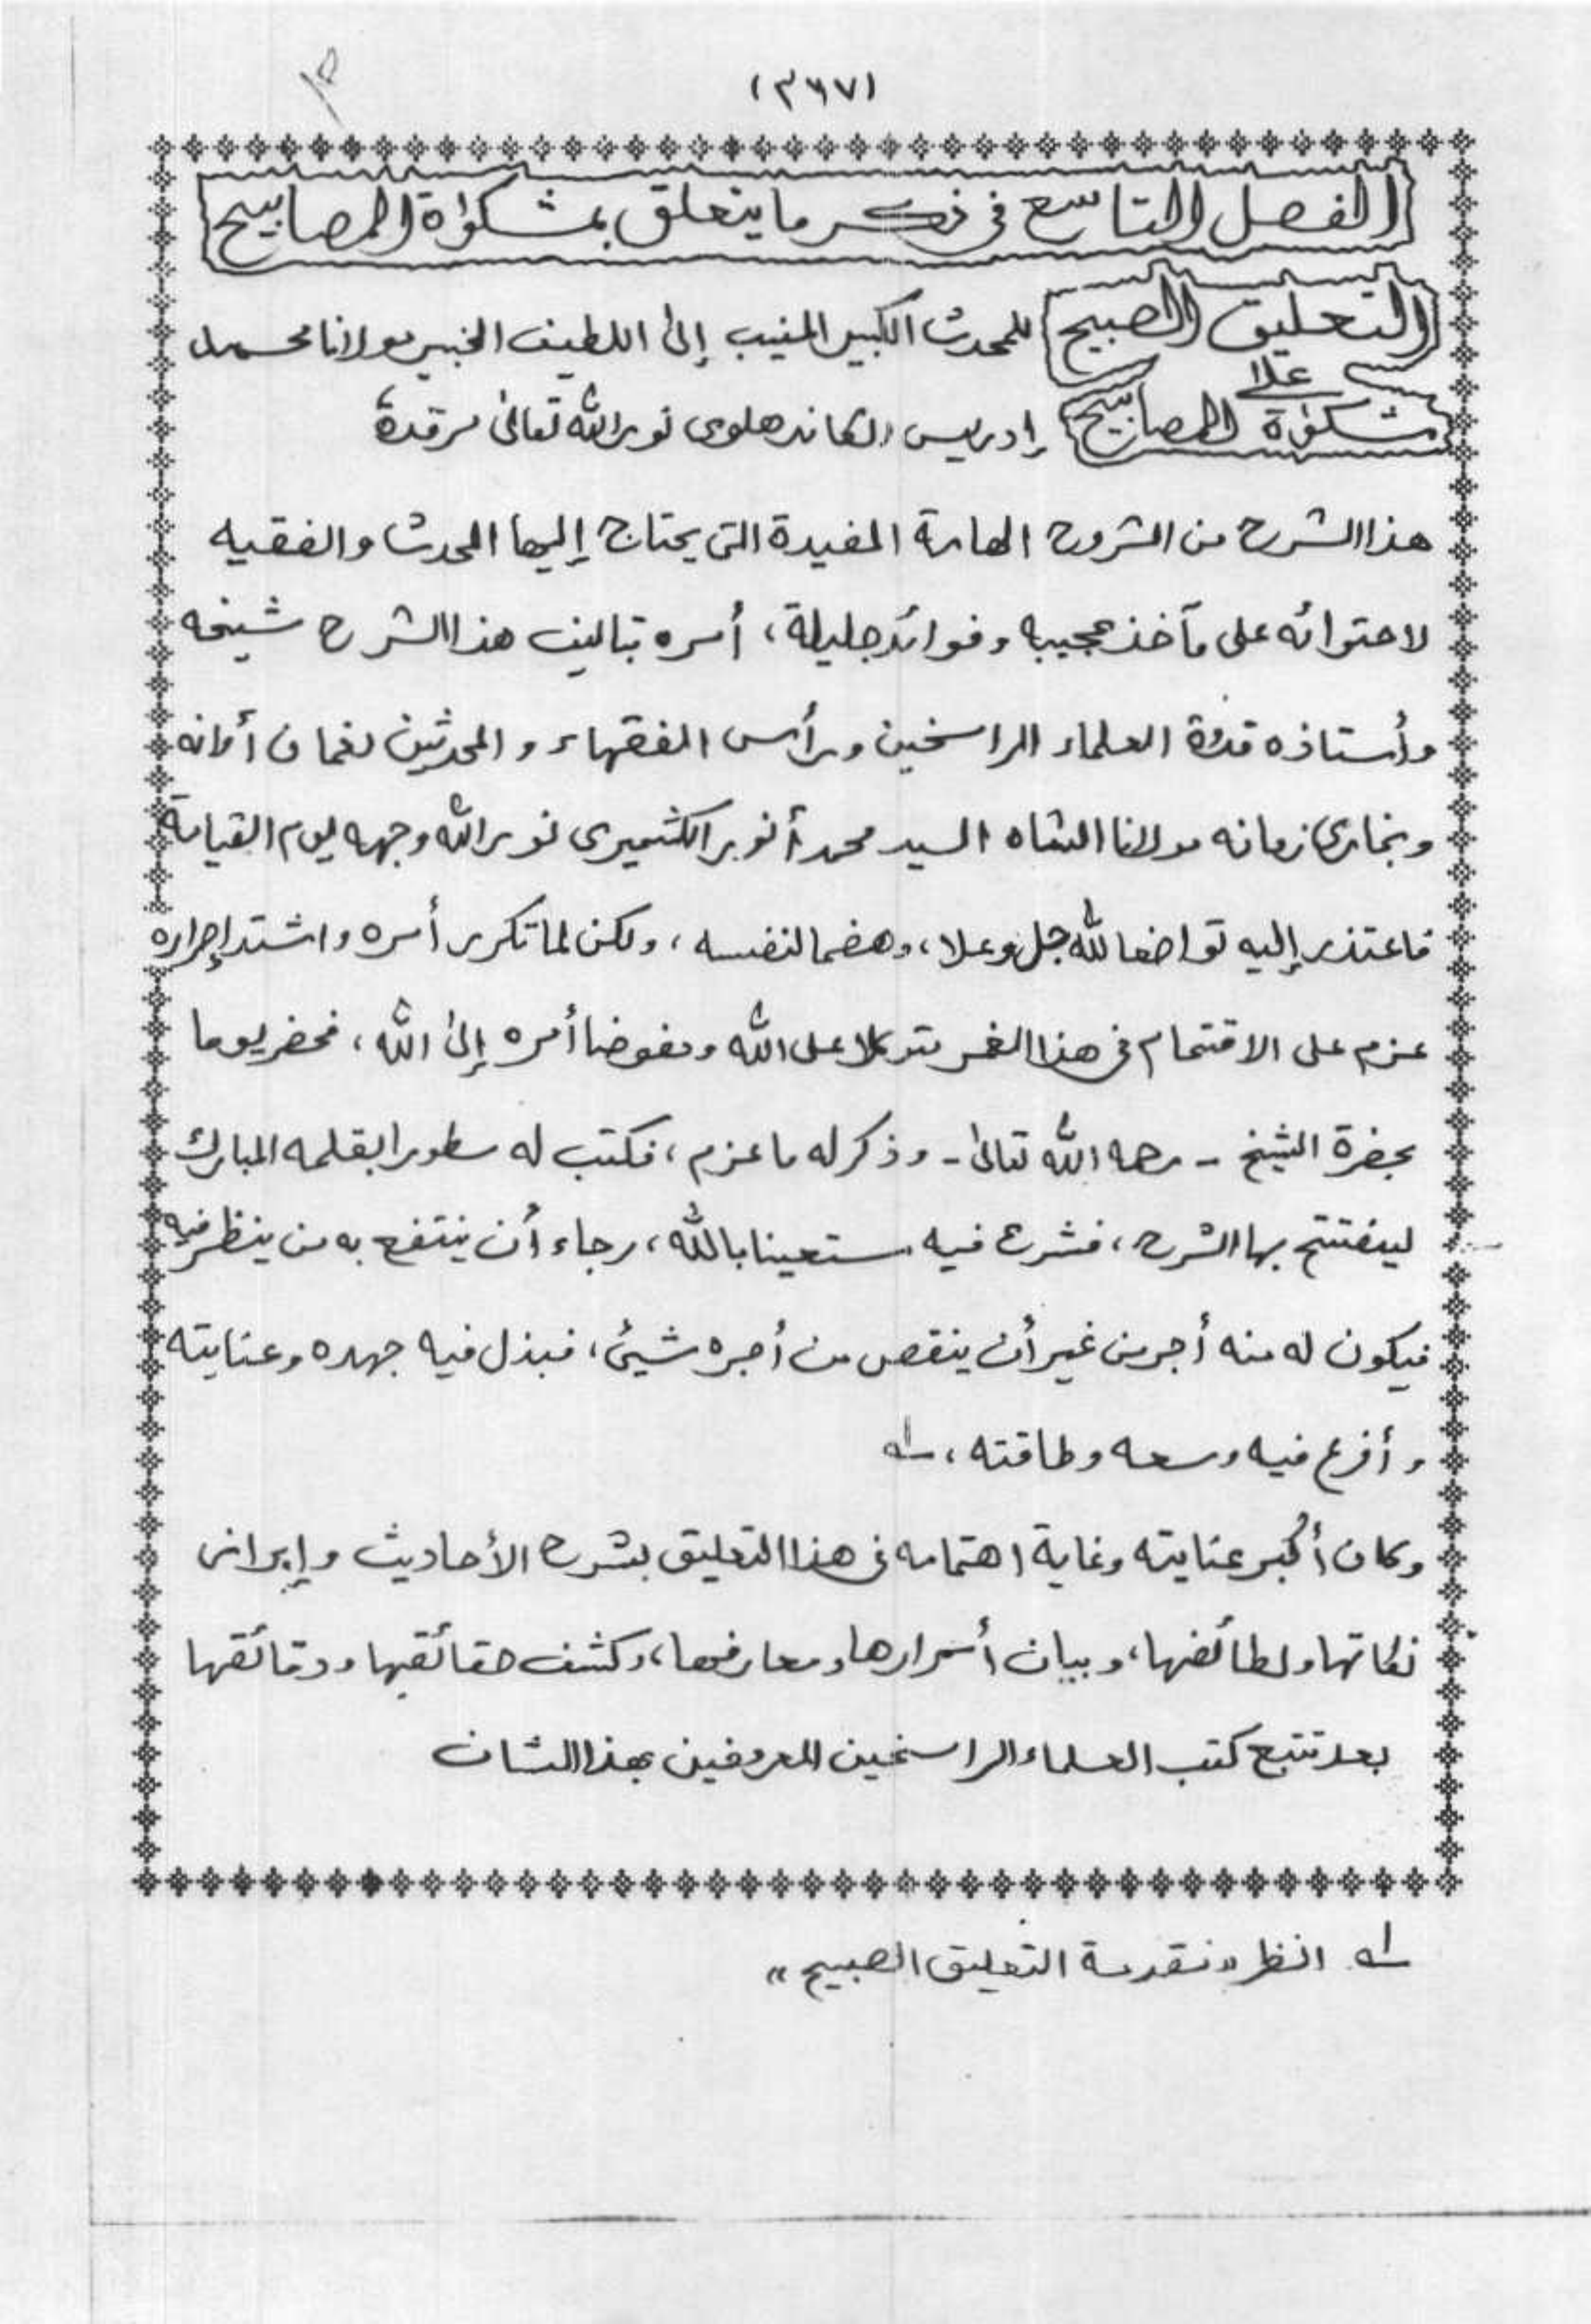 (٣٦٧)
الفصل التاسع فى ذكر ما يتعلق بمشكوٰة المصابيح
التعليق الصبيح للمحدث الكبير المنيب إلىٰ اللطيف الخبير مولانا محمد
على
مشكوٰة المصابيح إدريس الكاندهلوى نور الله تعالىٰ مرقدهٗ
هذا الشرح من الشروح الهامة المفيدة التى يحتاج إليها المحدث والفقيه
لاحتوائه على مآخذ عجيبه وفوائد جليلة، أمره بتاليف هذا الشرح شيخه
وأستاذه قدوة العلماء الراسخين ورأس الفقهاء والمحدثين نعمان أوانه
وبخارى زمانه مولانا الشاه السيد محمد أنور الكشميرى نور الله وجهه يوم القيامة
فاعتذر إليه تواضعا لله جل وعلا، وهضما لنفسه، ولكن لما تكرر أمره واشتد إصراره
عزم على الاقتحام فى هذا الغمر متوكلا على الله ومفوضا أمره إلىٰ الله، فحضر يوما
بحضرة الشيخ - رحمه الله تعالىٰ - وذكر له ما عزم، فكتب له سطورا بقلمه المبارك
ليفتتح بها الشرح، فشرع فيه مستعينا بالله، رجاء أن ينتفع به من ينظر فيه
فيكون له منه أجر من غير أن ينقص من أجره شيئ، فبذل فيه جهده وعنايته
وأفرغ فيه وسعه وطاقته، له
وكان أكبر عنايته وغاية اهتمامه فى هذا التعليق بشرح الأحاديث وإبراز
نكاتها ولطائفها، وبيان أسرارها ومعارفها، وكشف حقائقها ودقائقها
بعد تتبع كتب العلماء الراسخين المعروفين بهذا الشان
له انظر "مقدمة التعليق الصبيح"